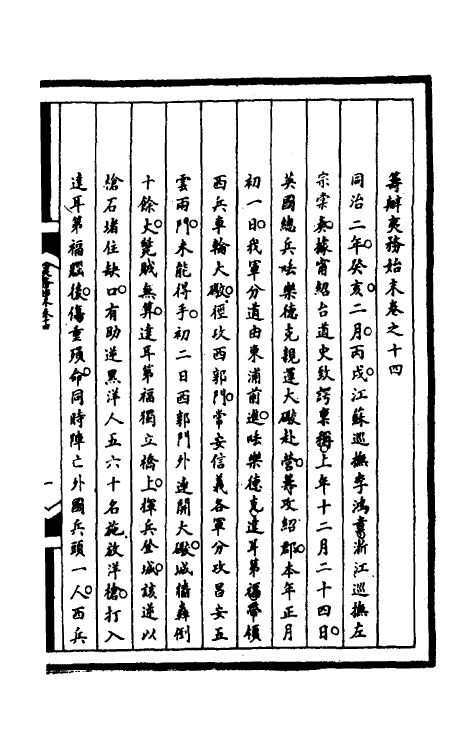 籌辦夷務始末卷之十四
同治二年癸亥二月丙戌江蘇巡撫李鴻章浙江巡撫左
宗棠奏據甯紹台道史致諤稟稱上年十二月二十四日
英國總兵呿樂德克親運大礮赴營籌攻紹郡本年正月
初一日我軍分道由東浦前進呿樂德克達耳第福帶領
西兵車輪大礮徑攻西郭門常安信義各軍分攻昌安五
雲兩門未能得手初二日西郭門外連開大礮城牆轟倒
十餘丈斃賊無算達耳第福獨立橋上揮兵登城該逆以
愴石堵住缺口有助逆黑洋人五六十名施放洋槍打入
達耳第福腦後傷重殞命同時陣亡外國兵頭一人西兵